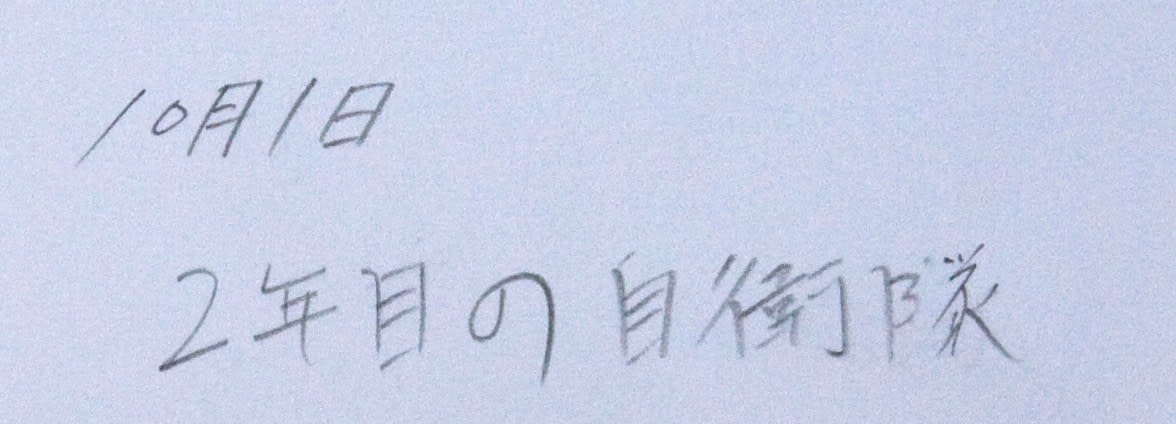 10月1日
2年目の自衛隊